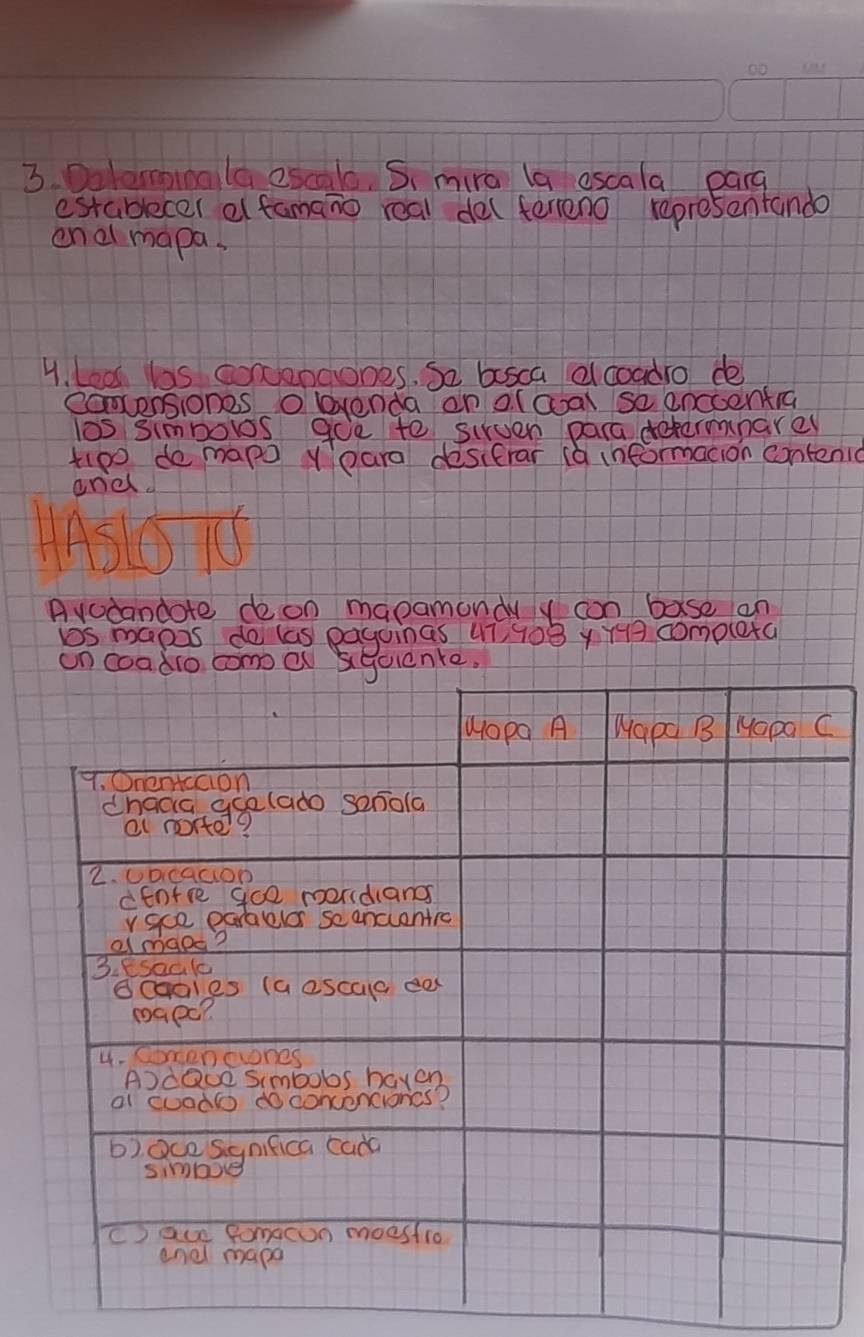 DD MM
3. Determina la escala. Si mira la escala para
establecer el tamaño real del terreno representando
en el mapa.
4. Lees las convenciones. Se busca el coadro de
convensiones o leyenda en el coal se encoentra
los simbolos qoe te sirven para determinar el
tipo de mapo y para desifrar la información contenid
en el.
HASLO TÚ
Ayodandote de on mapamondy y con base en
los mapas de las paguinas 47, 108 y 149 completa
on coadro como el sigoiente.
Mapa A Mapa B Mapa C
1. Orientacion
¿hacia qoe lado señala
al norte?
2. Ubicacion
¿Entre qoe meridianos
y qoe paralelos se encuentra
el mapa?
3. Escala
¿coales la escala del
mapa?
4. Convenciones
A) ¿Qoe simbolos hay en
al cuadro de convenciones?
b) Qoe significa cada
simbolo
c) que moestra
en el mapa